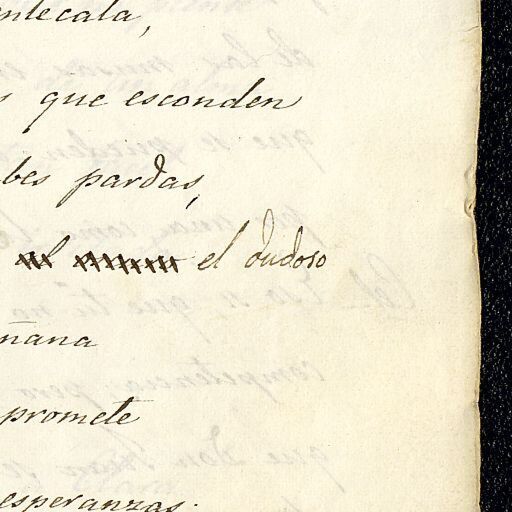 ntecala,
s que esconden
bes pardas,
el dudoso
ñana
promete
esperanzas.